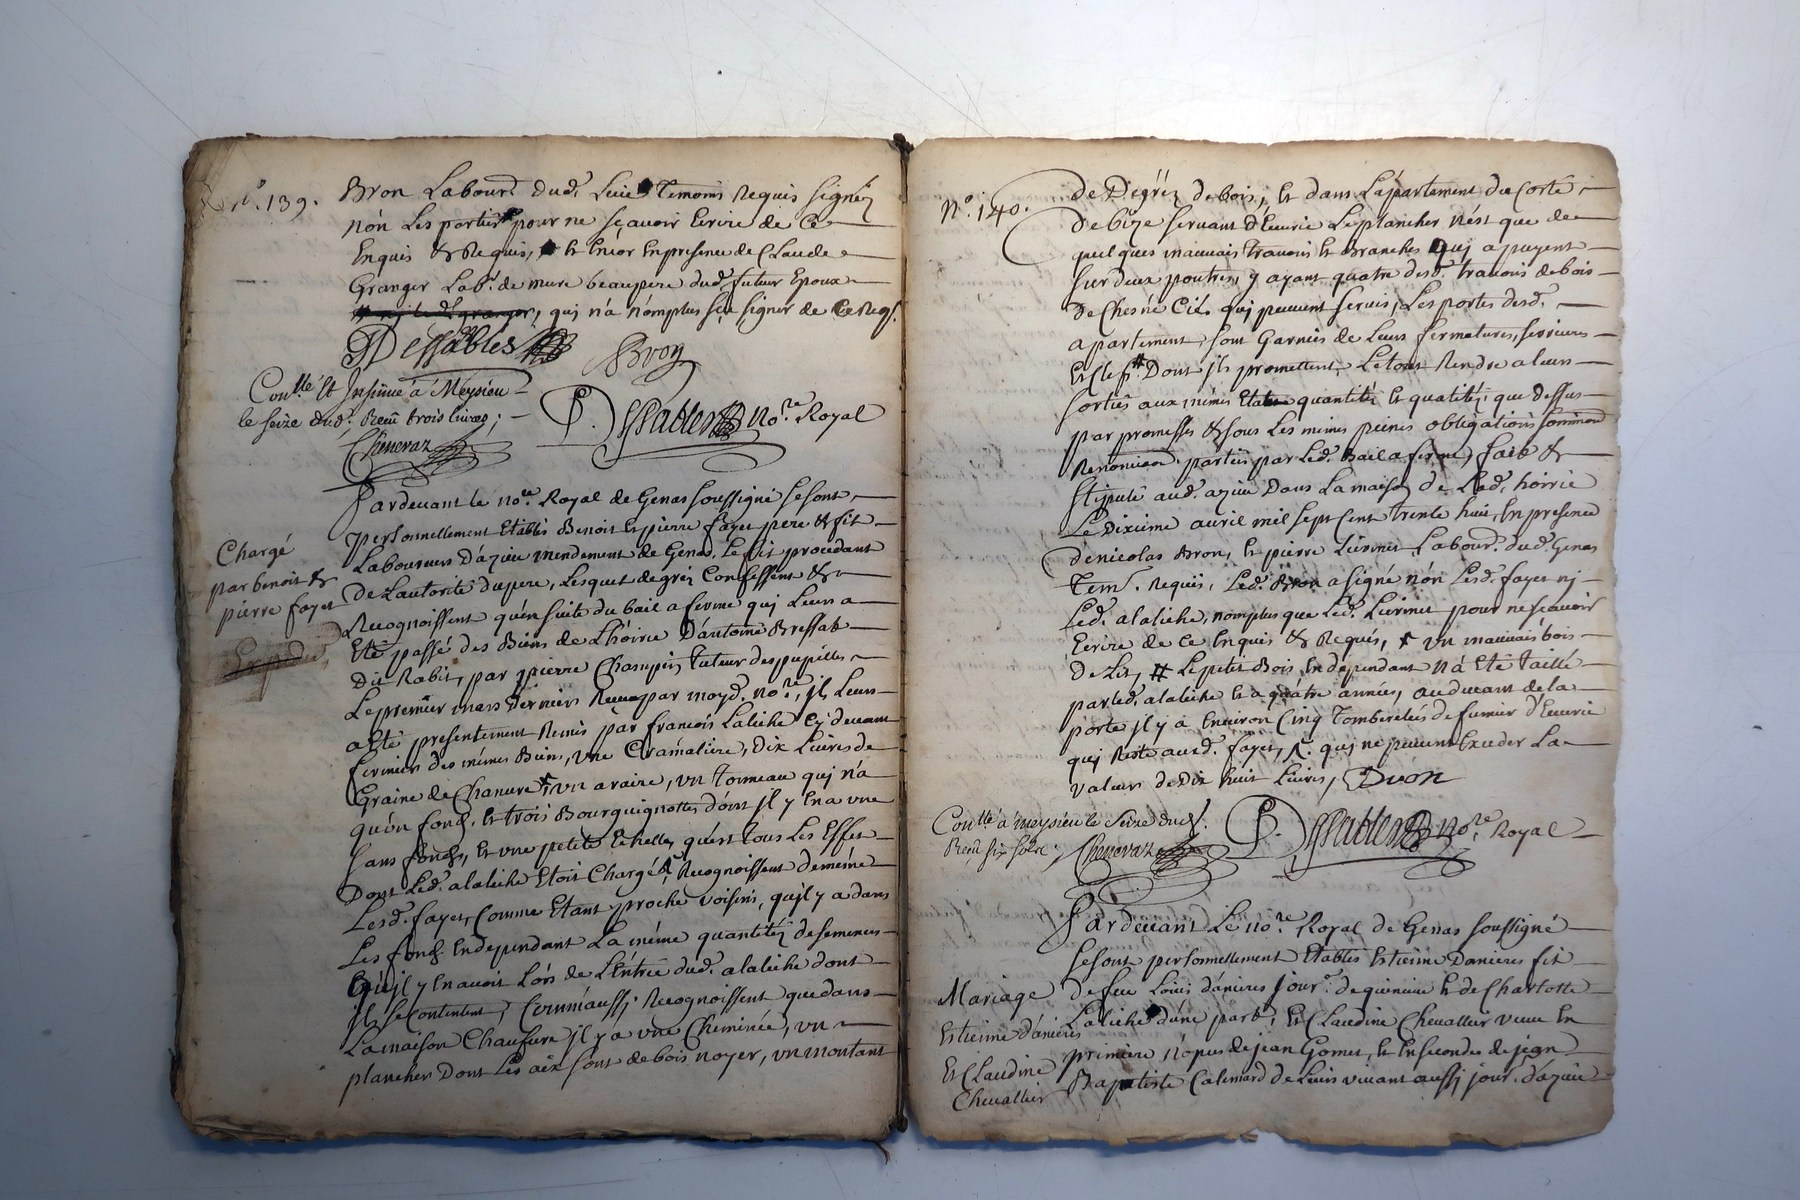 No. 139.
Bron Labour. dud. Luie Temoins Requis signéz
nón Les parties pour ne sçavoir Ecrire de Ce
Enquis & Requis, Et Encor En presence de Claude
Granger Lab.r de mure beaupere dud. futur Epoux
qui n'à nómplus sçu signer de Ce Req.
Dessables Bron
Con.lle Et Insinué à Meysieu
le seize dud. Receu trois livres;
P. Dessables No.re Royal
Cheneraz
Pardevant le no.re Royal de Genas soussigné se sont
personnellement Etablis Benoit Et pierre fayet pere & fils
Chargé
par benoit &
pierre fayet
Laboureurs D'azieu mendement de Genas, Le fils procedant
De L'autorité du pere, Lesquels de gréz Confessent &
Recognoissent qu'en suite du bail a ferme qui Leur a
Eté passé des Biens de L'hoirie D'antoine Bressat
Dit Rabit, par pierre Champin tuteur des pupilles
Le premier mars Dernier Receu par moyd. no.re, il Leur
a Eté presentement Remis par francois Laliche Cy devant
fermier des mémes Biens, vne Cramaliere, Dix Livres de
Graine de Chanvre, vn araire, vn tonneau qui n'a
qu'ún fond, Et trois Bourguignottes dónt Il y En a vne
sans fond, Et vne petite Echelle, qu'est tous Les Effets
Dont Led. alaliche Etoit Chargé, Recognoissent de méme
Lesd. fayet, Comme Etant proche voisins, qu'il y a dans
Les fonds En dependant La méme quantitéz de semences
qu'il y En avoit Lórs de L'Entrée dud. alaliche dont
Il se Contentent, Comm'aussi Recognoissent que dans
La maison Chaufure il y a vne Cheminée, vn
plancher Dont Les aix sont de bois noyer, vn montant
No. 140.
de Dégréz de bois, Et dans L'apartement du Cotté
de bize servant d'Ecurie Le plancher n'est que de
quelques mauvais travons Et Branches qui apuyent
sur deux poutres, y ayant quatre desd. travons de bois
de Chesne qui peuvent servir, Les portes desd.
apartement sont Garnies de Leurs fermetures, serrures
Et Clefs # Dont ils promettent Le tout Rendre a leur
sortie aux mémes quantitéz Et qualitéz que dessus
par promesses & sous Les mémes peines obligations
Renonciaon. portéés par Led. Bail a ferme, fait &
stipulé aud. azieu Dans La maison de Lad. hoirie
Le Dixieme avril mil sept Cent trente huit, En presence
de nicolas Bron, Et pierre Labour. dud. Genas
Tem.s Requis, Led. Bron a signé nón Lesd. fayet ni
Led. alaliche, nomplus que Led. pour ne scavoir
Ecrire de Ce Enquis & Requis, vn mauvais bois
de Lit, # Le petit Bois En dependant n'á Eté taillé
par Led. alaliche Et a quátre années, au devant de la
porte il y a Environ Cinq Tomberelées de fumier d'Ecurie
qui Reste aud. fayet, qui ne peuvent Exceder La
valeur de Dix huit Livres, Bron
Con.llé a meysieu le seize dud.
Receu six sols. Cheneraz
P. Dessables No.re Royal
Pardevant Le no.re Royal de Genas soussigné
se sont personnellement Etablis Estienne Danieres fils
Mariage
Estienne d'anieres
Et Claudine
Chevallier
de feu Loüis d'ánieres Jour.r de Et de Charlotte
Laliche d'une part, Et Claudine Chevallier veuve En
premiere nópces de jean Gomet, Et En secondes de jean
Baptiste Calemard de Leurs vivant aussi jour. d'azieu